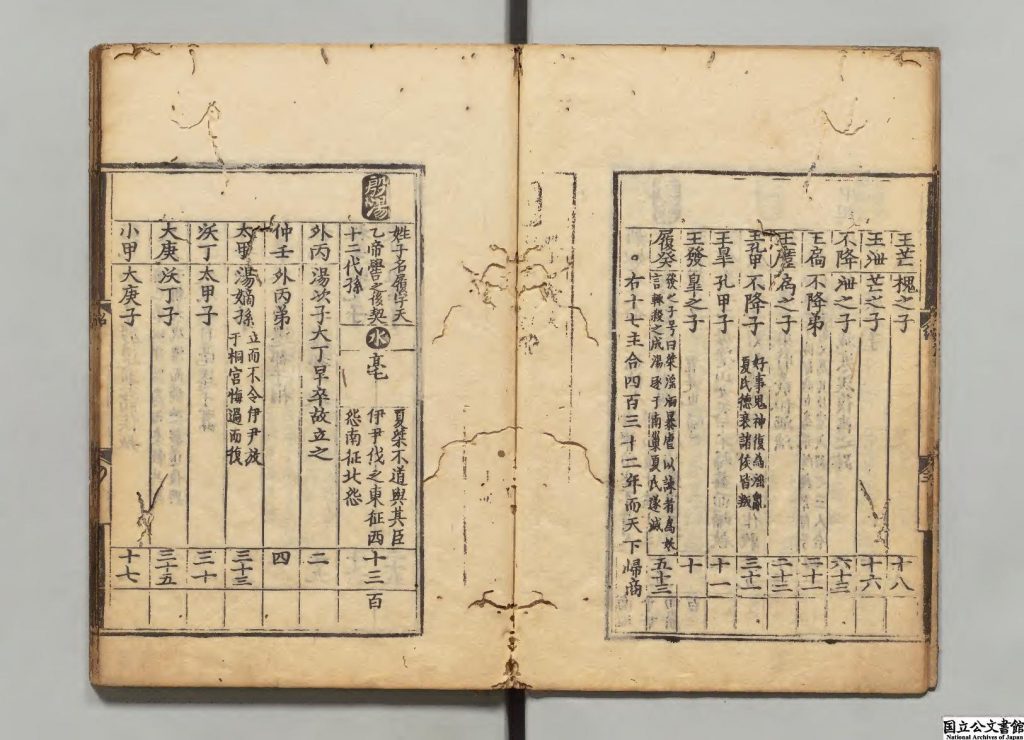 王芒 槐之子 十八
王泄 芒之子 十六
不降 泄之子 六十三
王扃 不降弟 二十一
王廑 扃之子 二十三
王孔甲 不降子 好事鬼神復為淫亂 三十一
夏氏德衰諸侯皆叛
王皐 孔甲子 十一
王發 皐之子 十
履癸 發之子号曰桀淫湎暴虐以諫者為妖 五十三
言輒殺之成湯逐于南巢夏氏遂滅
。右十七主合四百三十二年而天下歸商
殷湯
姓子名履字天
乙帝嚳之後契
十二代孫
水
亳
夏桀不道與其臣
伊尹伐之東征西
怨南征北怨
十三 百
外丙 湯次子大丁早卒故立之 二
仲壬 外丙弟 四
太甲 湯嫡孫 立而不令伊尹放 三十三
于桐宮悔過而復
沃丁 太甲子 三十
大庚 沃丁子 二十五
小甲 大庚子 十七
国立公文書館
National Archives of Japan